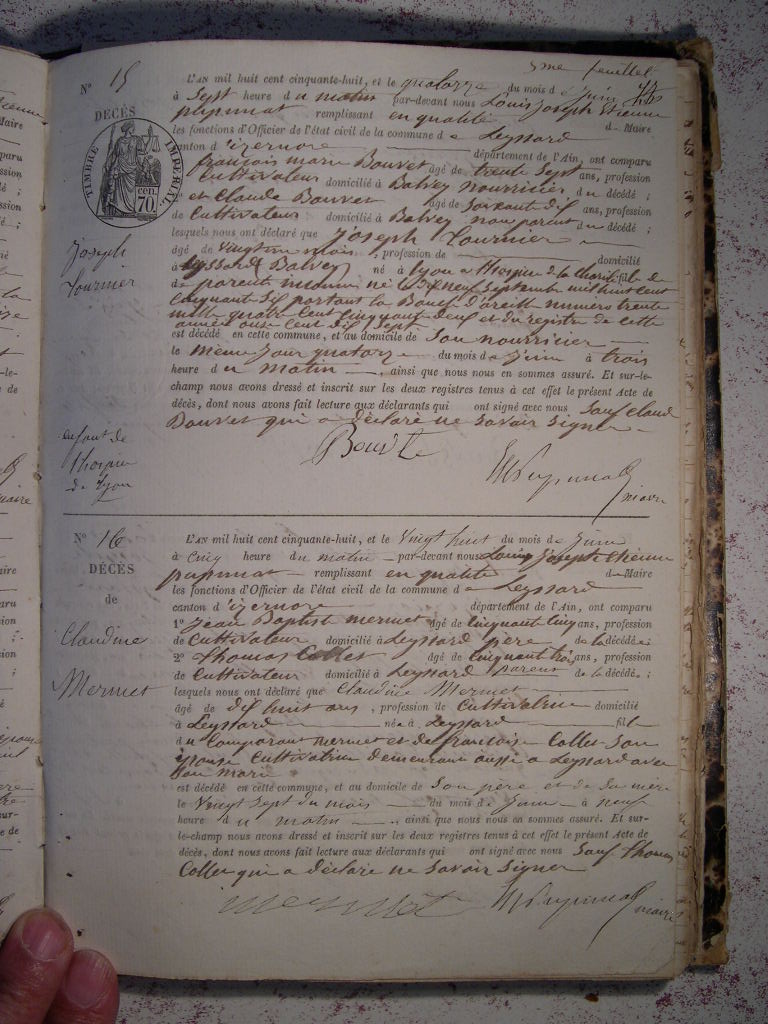 5me feuillet
N° 15
L'AN mil huit cent cinquante-huit, et le quatorze du mois de Juin
à Sept heure du matin par-devant nous Louis Joseph Etienne
DÉCÈS
pupunat remplissant en qualité de Maire
les fonctions d'Officier de l'état civil de la commune de Leyssard
canton d'izernore département de l'Ain, ont comparu
TIMBRE IMPÉRIAL
70 cen.
françois marie Bouvet âgé de trente Sept ans, profession
de Cultivateur domicilié à Balvey nourricier du décédé ;
et Claude Bouvet âgé de Soixante dix ans, profession
de Cultivateur domicilié à Balvey non parent du décédé ;
lesquels nous ont déclaré que Joseph Tournier
Joseph
Tournier
âgé de Vingt un mois, profession de domicilié
à Leyssard Balvey né à Lyon a l'hospice de la charité fils de
de parents inconnu né le dix neuf Septembre mil huit cent
Cinquante Six portant la Boucle d'oreille numéro trente
mille quatre Cent Cinquante deux et du registre de cette
année onze Cent dix Sept
est décédé en cette commune, et au domicile de Son nourricier
le même Jour quatorze du mois de Juin à trois
heure du matin, ainsi que nous nous en sommes assuré. Et sur-le-
champ nous avons dressé et inscrit sur les deux registres tenus à cet effet le présent Acte de
décès, dont nous avons fait lecture aux déclarants qui ont signé avec nous Sauf Claude
Bouvet qui a déclaré ne Savoir Signer
enfant de
l'hospice
de Lyon
Bouvet
Pupunat
maire
N° 16
L'AN mil huit cent cinquante-huit, et le Vingt huit du mois de Juin
à Cinq heure du matin par-devant nous Louis Joseph Etienne
DÉCÈS
pupunat remplissant en qualité de Maire
de
les fonctions d'Officier de l'état civil de la commune de Leyssard
canton d'izernore département de l'Ain, ont comparu
1° Jean Baptiste mermet âgé de Cinquante Cinq ans, profession
Claudine
de Cultivateur domicilié à Leyssard père de la décédée ;
2° Thomas Collet âgé de Cinquante trois ans, profession
de Cultivateur domicilié à Leyssard parent de la décédée ;
Mermet
lesquels nous ont déclaré que Claudine Mermet
âgé de dix huit ans, profession de Cultivatrice domicilié
à Leyssard née à Leyssard fille
du Comparant mermet et de françoise Collet Son
épouse Cultivatrice demeurant aussi a Leyssard avec
Son mari
est décédé en cette commune, et au domicile de Son père et de Sa mère
le Vingt Sept du mois du mois de Juin à neuf
heure du matin, ainsi que nous nous en sommes assuré. Et sur-
le-champ nous avons dressé et inscrit sur les deux registres tenus à cet effet le présent Acte de
décès, dont nous avons fait lecture aux déclarants qui ont signé avec nous Sauf thomas
Collet qui a déclaré ne Savoir Signer
mermet
Pupunat
maire